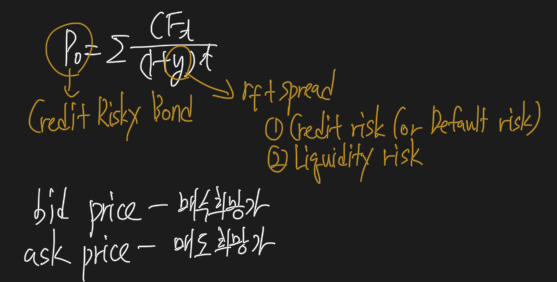 P₀ = Σ CFt / (1+y)^t
Credit Risky Bond
rf + spread
① Credit risk (or Default risk)
② Liquidity risk
bid price - 매수희망가
ask price - 매도희망가